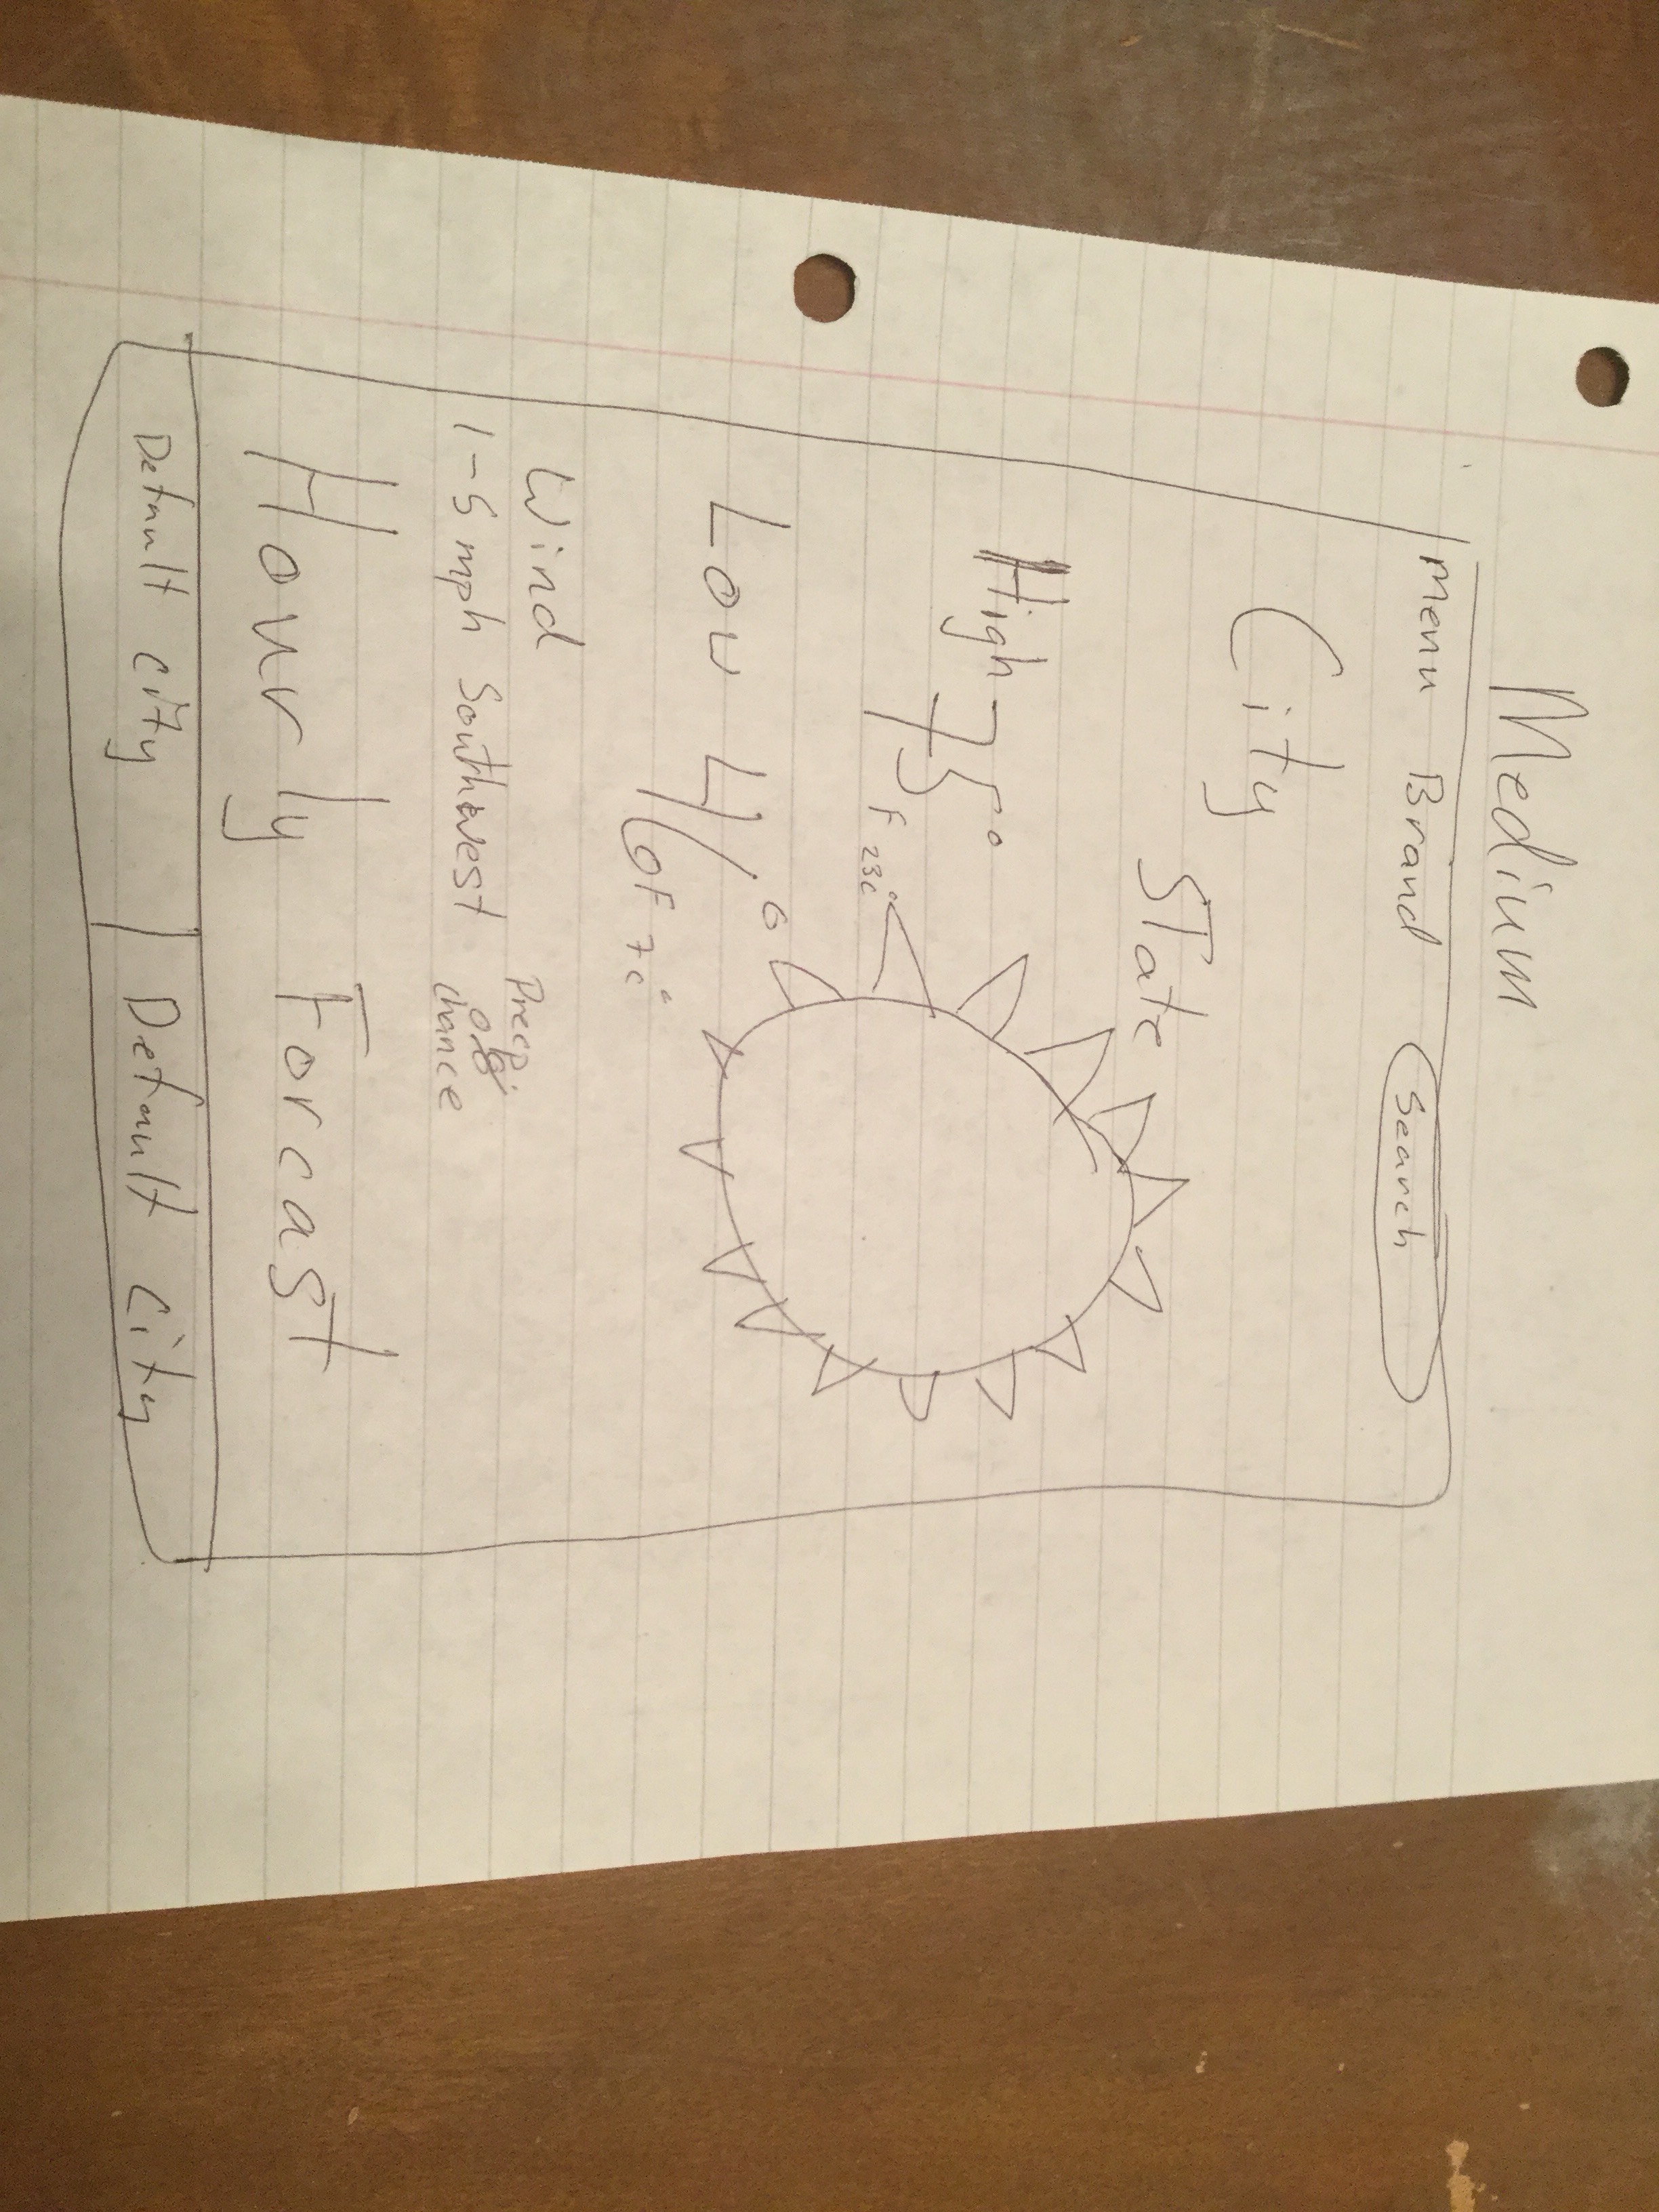 Medium
Menu Brand Search
City
State
High 75°
F 23c°
Low 46°
F 7c°
Wind
1-5 mph Southwest
Precip
0%
chance
Hourly Forcast
Default City Default City